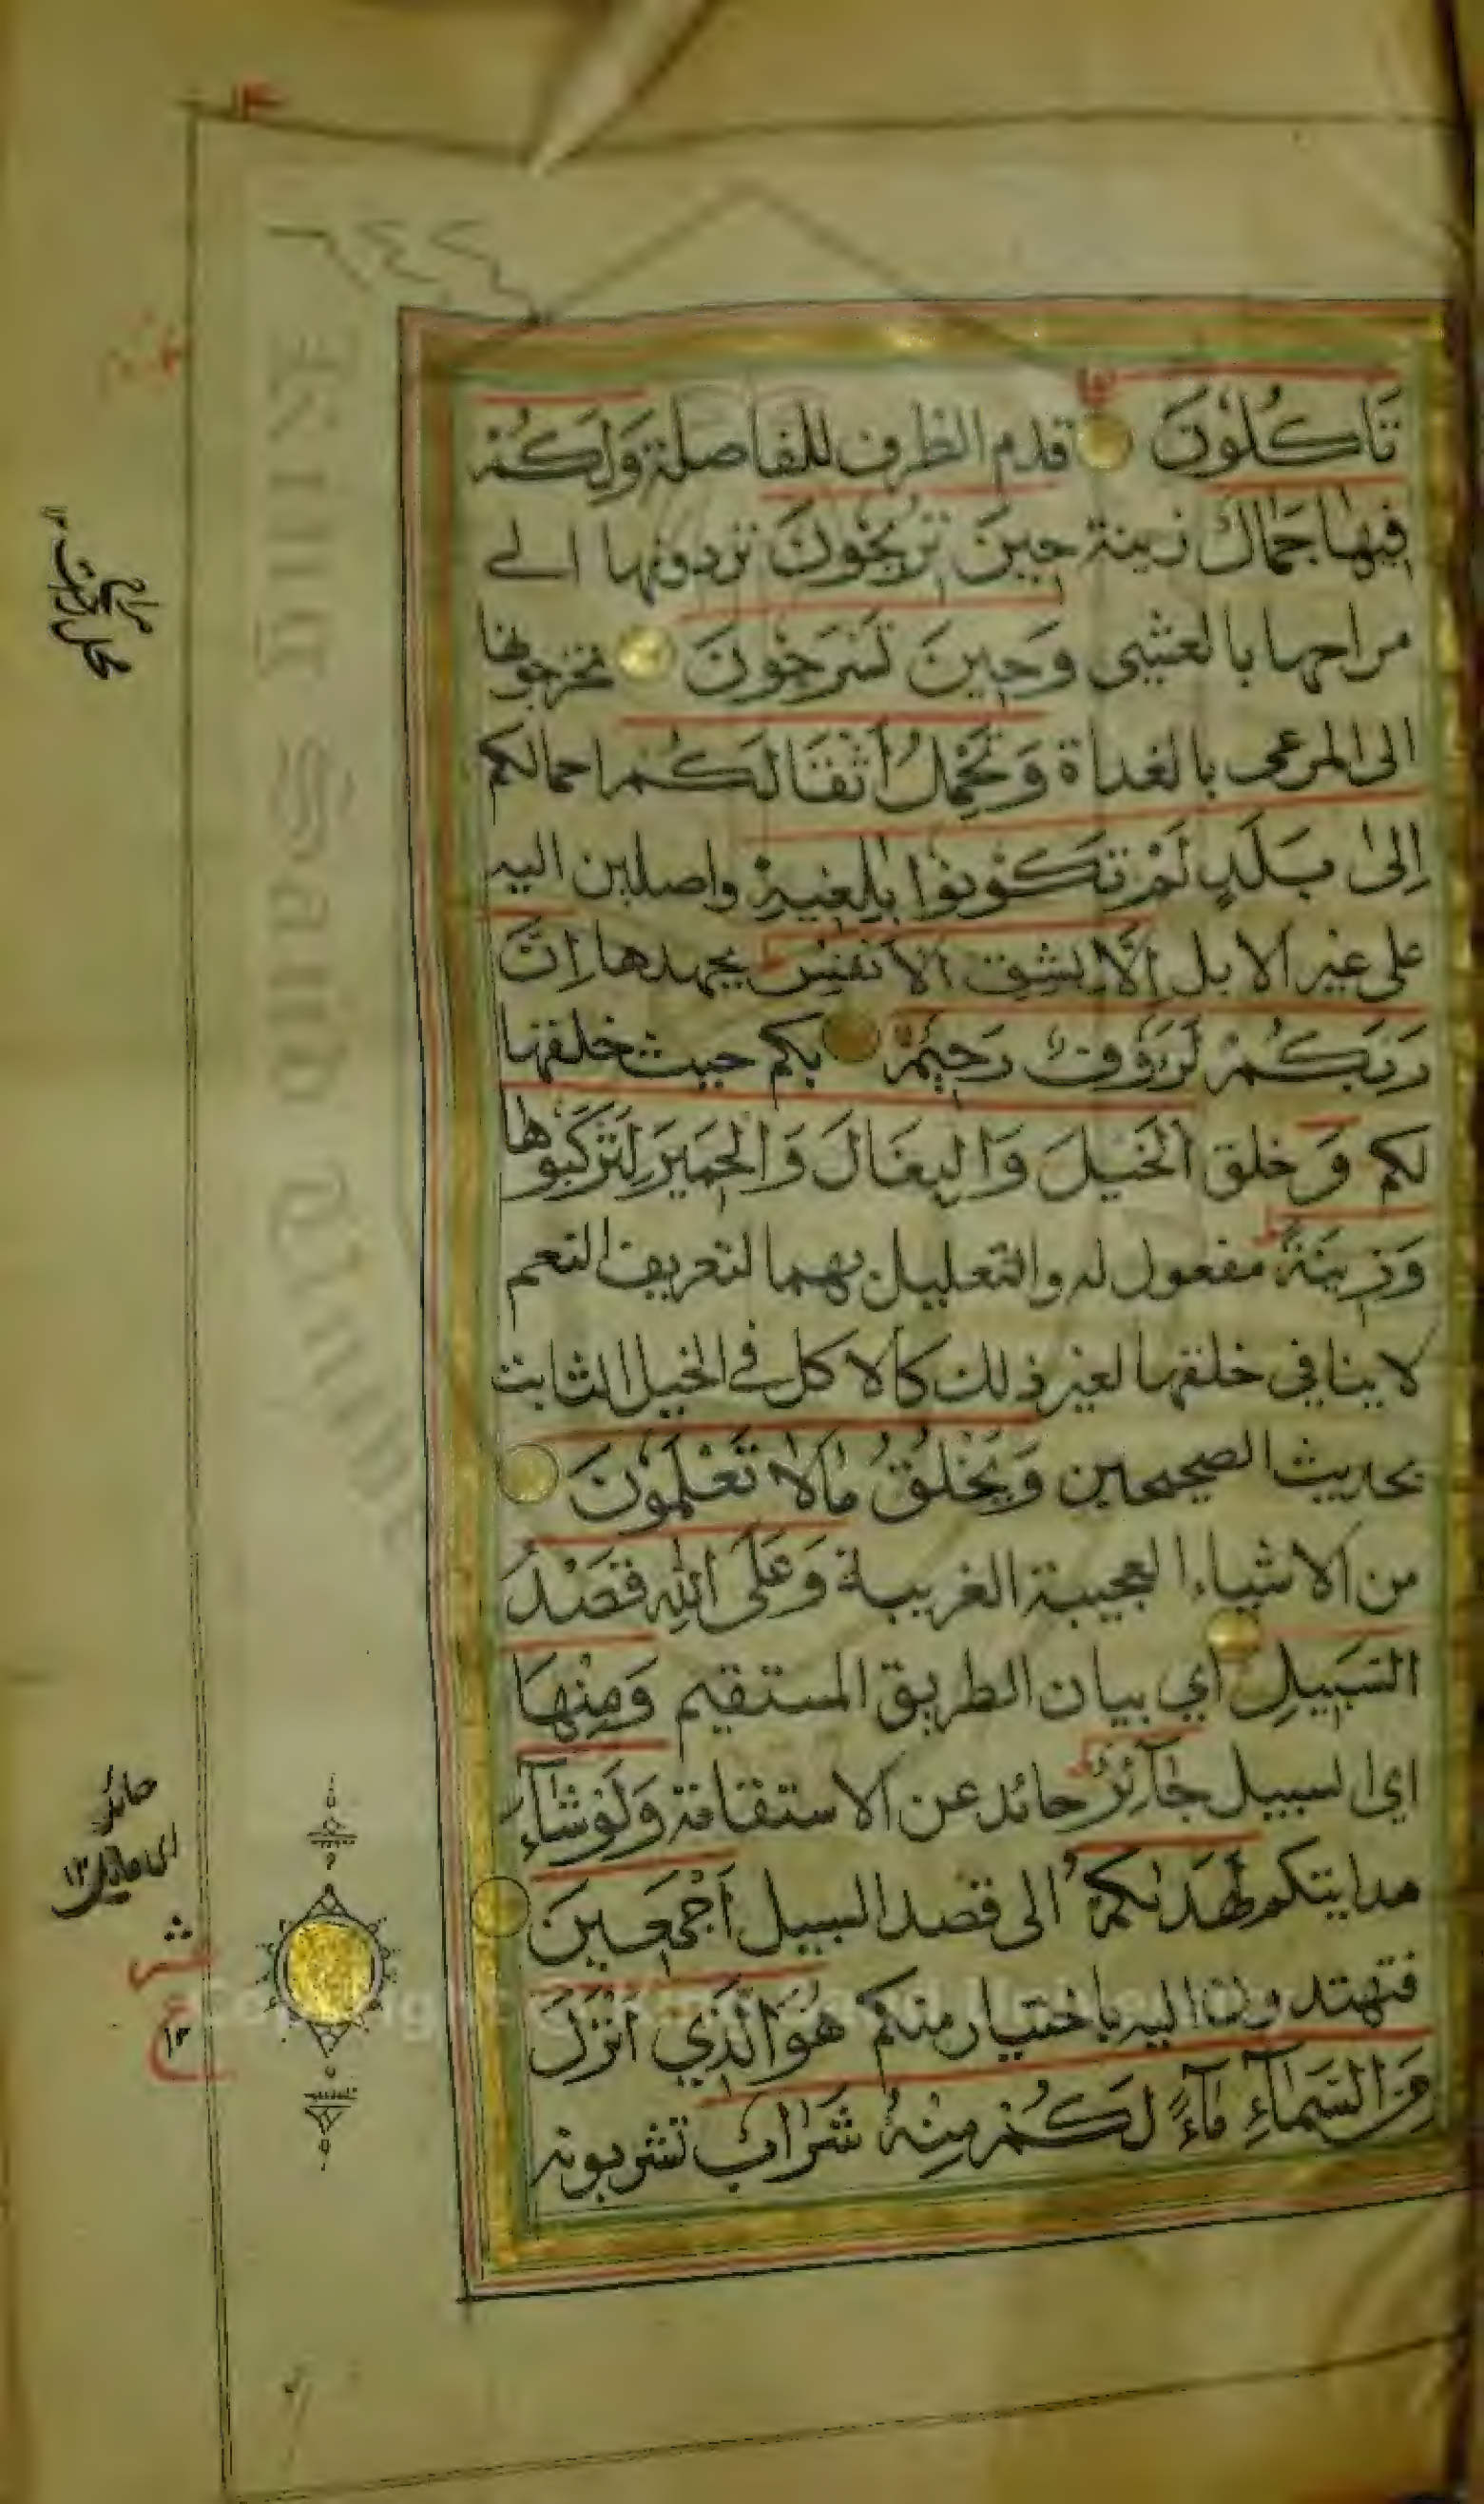 تَاكُلُوْنَ قدم الظرف للفاصلة وَلَكُمْ
فِيْهَا جَمَالٌ زينة حِيْنَ تُرِيْحُوْنَ تردونها الى
مراحها بالعشى وَحِيْنَ تَسْرَحُوْنَ تخرجونها
الى المرعى بالغداة وَتَحْمِلُ اَثْقَالَكُمْ احمالكم
اِلٰى بَلَدٍ لَمْ تَكُوْنُوْا بٰلِغِيْهِ واصلين اليه
على غير الابل اِلَّا بِشِقِّ الْاَنْفُسِ بجهدها اِنَّ
رَبَّكُمْ لَرَءُوْفٌ رَحِيْمٌ بكم حيث خلقها
لكم وَ خلق الْخَيْلَ وَالْبِغَالَ وَالْحَمِيْرَ لِتَرْكَبُوْهَا
وَزِيْنَةً مفعول له والتعليل بهما لتعريف النعم
لا ينافي خلقها لغير ذلك كالاكل في الخيل الثابت
بحديث الصحيحين وَيَخْلُقُ مَا لَا تَعْلَمُوْنَ
من الاشياء العجيبة الغريبة وَعَلَى اللّٰهِ قَصْدُ
السَّبِيْلِ اي بيان الطريق المستقيم وَمِنْهَا
اي السبيل جَآئِرٌ حائد عن الاستقامة وَلَوْ شَآءَ
هدايتكم لَهَدٰىكُمْ الى قصد السبيل اَجْمَعِيْنَ
فتهتدون اليه باختيار منكم هُوَ الَّذِي اَنْزَلَ
مِنَ السَّمَآءِ مَآءً لَكُمْ مِنْهُ شَرَابٌ تشربونه